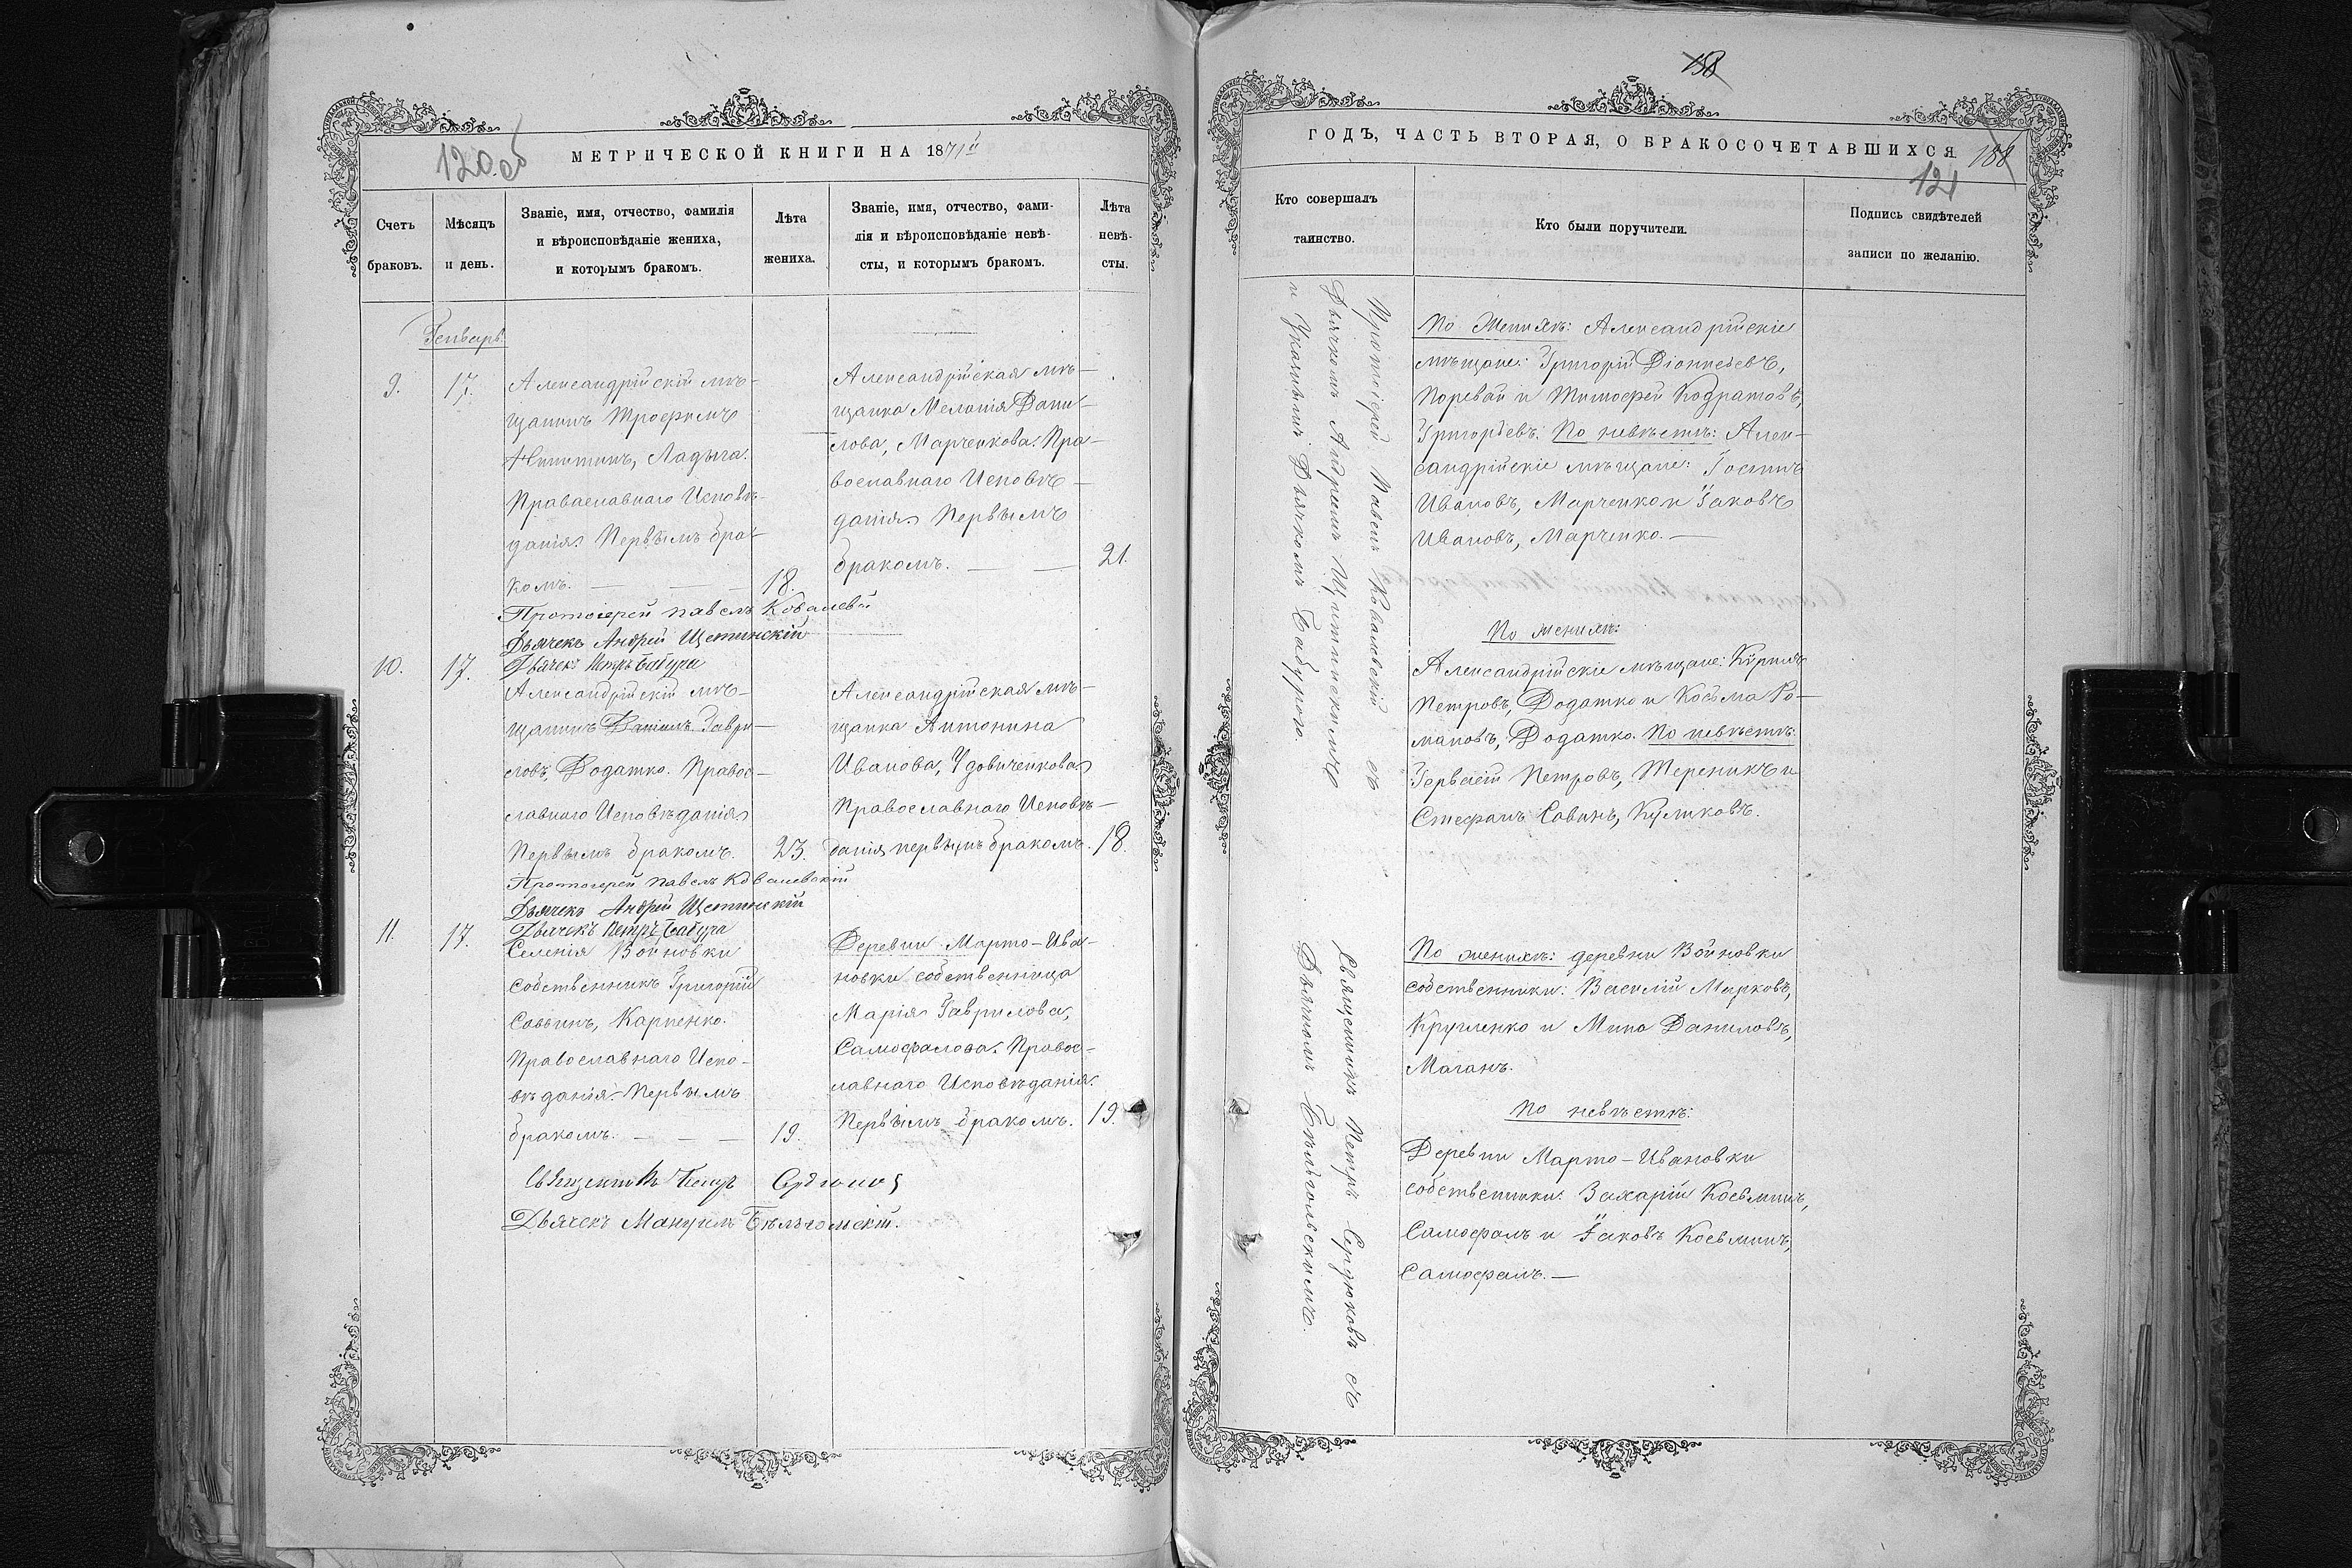 120 об
МЕТРИЧЕСКОЙ КНИГИ НА 1871й
Счетъ
браковъ.
Мѣсяцъ
и день.
Званіе, имя, отчество, фамилія
и вѣроисповѣданіе жениха,
и которымъ бракомъ.
Лѣта
жениха.
Званіе, имя, отчество, фами-
лія и вѣроисповѣданіе невѣ-
сты, и которымъ бракомъ.
Лѣта
невѣ-
сты.
Генварь.
9.
17.
Александрійскій мѣ-
щанинъ Трофимъ
Никитинъ, Ладыга.
Праваславнаго Исповѣ-
данія. Первымъ бра-
комъ. — —
18.
Александрійская мѣ-
щанка Меланія Дани-
лова, Марченкова. Пра-
вославнаго Исповѣ-
данія. Первымъ
бракомъ. — —
21.
Протоіерей Павелъ Ковалевскій
Дьячекъ Андрей Щетинскій
Дьячекъ Петръ Бабура
10.
17.
Александрійскій мѣ-
щанинъ Даніилъ Гаври-
ловъ, Додатко. Правос-
лавнаго Исповѣданія
Первымъ бракомъ.
23.
Александрійская мѣ-
щанка Антонина
Иванова, Удовиченкова
Православнаго Исповѣ-
данія первымъ бракомъ.
18.
Протоіерей Павелъ Ковалевскій
Дьячекъ Андрей Щетинскій
Дьячекъ Петръ Бабура
11.
17.
Селенія Войновки
собственникъ Григорій
Саввинъ, Карпенко.
Православнаго Испо-
вѣданія. Первымъ
бракомъ. — — —
19.
Деревни Марто-Ива-
новки собственница
Марія Гаврилова,
Самофалова. Правос-
лавнаго Исповѣданія.
Первымъ бракомъ.
19.
Священникъ Петръ Сердюковъ
Дьячекъ Мануилъ Бѣльгольскій.
158
ГОДЪ, ЧАСТЬ ВТОРАЯ, О БРАКОСОЧЕТАВШИХСЯ
158
121
Кто совершалъ
таинство.
Кто были поручители.
Подпись свидѣтелей
записи по желанію.
Протоіерей Павелъ Ковалевскій съ
Дьячкомъ Андреемъ Щетинскимъ
и Дьячкомъ Бабурою.
По женихѣ: Александрійскіе
мѣщане: Григорій Діонисіевъ,
Поревай и Тимофей Кодратовъ,
Григорьевъ. По невѣстѣ: Алек-
сандрійскіе мѣщане: Іостинъ
Ивановъ, Марченко и Іаковъ
Ивановъ, Марченко. —
По женихѣ:
Александрійскіе мѣщане: Курилъ
Петровъ, Додатко и Косьма Ро-
мановъ, Додатко. По невѣстѣ:
Гервасій Петровъ, Тереникъ и
Стефанъ Савинъ, Куликовъ.
Священникъ Петръ Сердюковъ съ
Дьячкомъ Бѣльгольскимъ.
По женихѣ: деревни Войновки
собственники: Василій Марковъ,
Кругленко и Мина Даниловъ,
Маганъ.
По невѣстѣ:
Деревни Марто-Ивановки
собственники: Захарій Косьминъ,
Самофалъ и Іаковъ Косьминъ,
Самофалъ. —